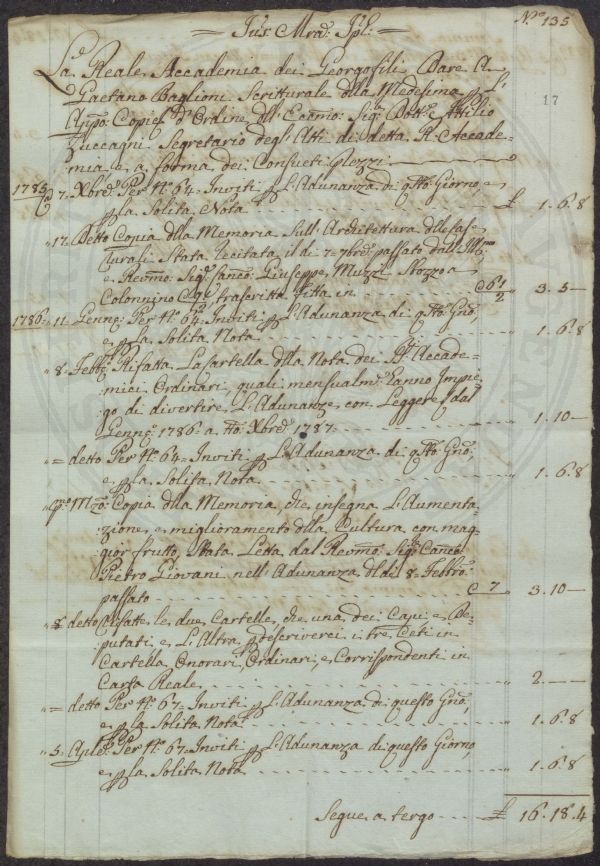 N.º 135
Jus: Mrad: Jpl:
17
La Reale Accademia dei Georgofili Dare A
Gaetano Baglioni Scritturale dlla Medesima p L'
Appo: Copie p Ordine dll' Ecc̃mo: Sig: Dott: Attilio
Zuccagni Segretario degl'Atti di detta R. Accade-
mia e a forma dei Consueti Prezzi
1785 a 7. Xbre: Per N.º 64. Inviti p L'Adunanza di qto Giorno, e
p la Solita Nota £ 1.6.8
" 17. Detto Copia dlla Memoria Sull'Architettura dlle Case
Rurali Stata recitata il di 7. 7bre: passato dall' Ill̃mo
e Revmo: Sig: Canco: Giuseppe Muzzi Stozzo a
Colonnino trascritta fitta in C 6 1/2 " 3.5 —
1786. " 11. Genn: Per N.º 64. Inviti p L'Adunanza di qto Gno,
e p la Solita Nota " 1.6.8
" 8. Febb: Rifatta La Cartella dlla Nota dei Sig:ri Accade-
mici Ordinari quali mensualm:e Eanno Impie-
go di divertire L'Adunanze con Leggere dal
Genn: 1786. a tto Xbre: 1787. " 1.10 —
" = detto Per N.º 64. Inviti p L'Adunanza di qto Gno,
e p la Solita Nota " 1.6.8
" pmo Mzo: Copia dlla Memoria che insegna L'Aumenta-
zione, e miglioramento dlla Cultura con mag-
gior frutto, Stata Letta dal Revmo: Sig: Canco:
Pietro Giovani nell'Adunanza dl dì 8. Febbro:
passato C 7 " 3.10 —
" 8 detto Rifatte le due Cartelle, che una dei Capi e De-
putati, e L'Altra p descriverci i tre Ceti in
Cartella Onorari, Ordinari, e Corrispondenti in
Carta Reale " 2. —
" = detto Per N.º 67. Inviti p L'Adunanza di questo Gno,
e p la Solita Nota " 1.6.8
" 5. Aple: Per N.º 67. Inviti p L'Adunanza di questo Giorno,
e p la Solita Nota " 1.6.8
Segue a tergo £ 16.18.4